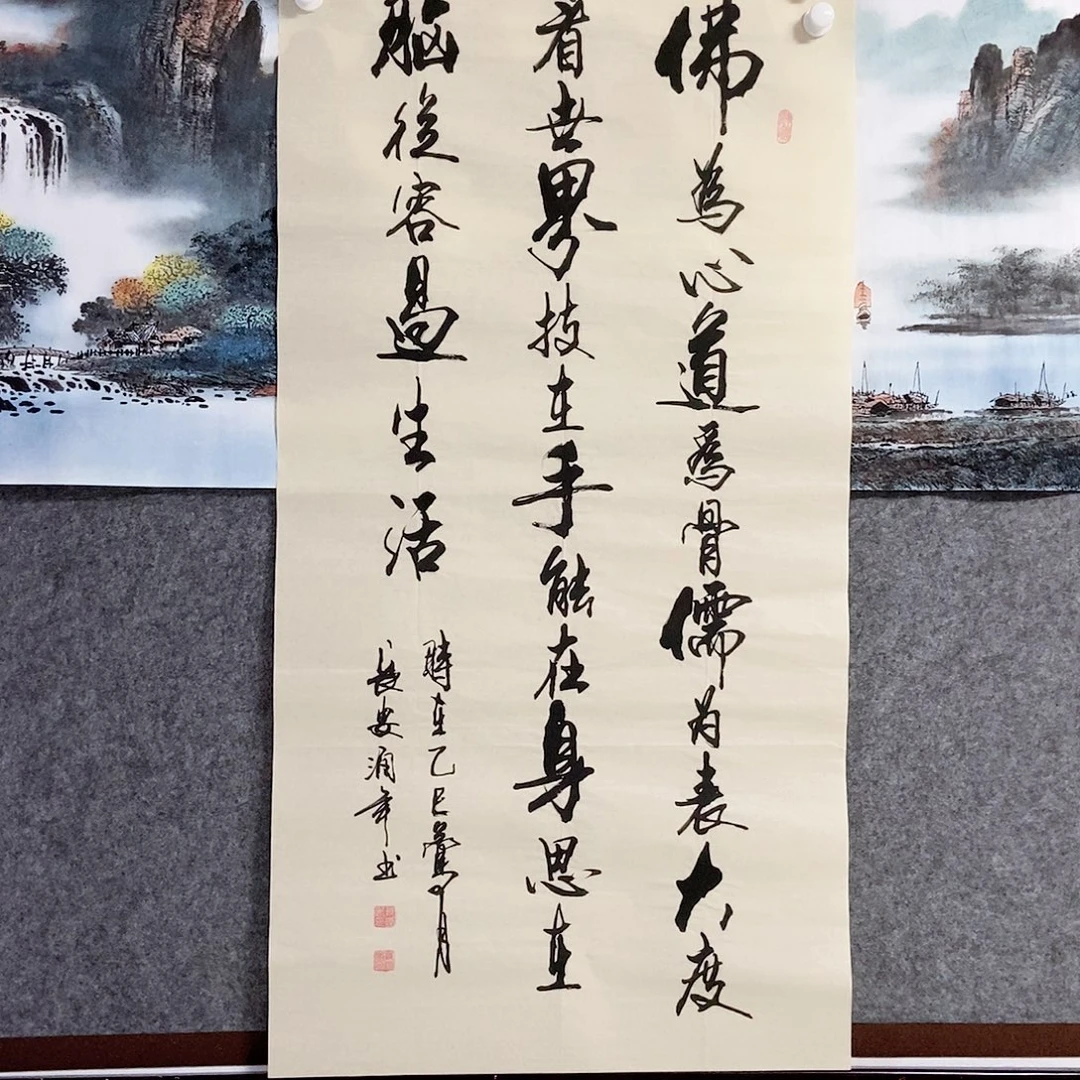 佛為心道為骨儒为表大度
看世界技在手能在身思在
脑從容過生活
時在乙巳月
長安润年书